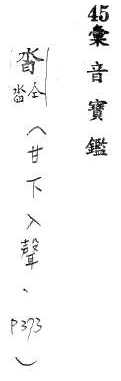 45彙音寶鑑
沓仝
畓
（甘下入聲、P393）